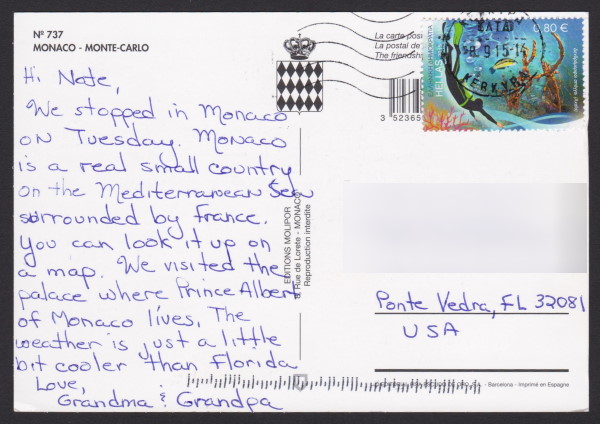 Nº 737
MONACO - MONTE-CARLO
Hi Nate,
We stopped in Monaco
on Tuesday. Monaco
is a real small country
on the Mediterranean Sea
surrounded by France.
You can look it up on
a map. We visited the
palace where Prince Albert
of Monaco lives. The
weather is just a little
bit cooler than Florida
Love,
Grandma & Grandpa
EDITIONS MOLIPOR
Rue de Lorete - MONACO
Reproduction interdite
La carte post
La postal de
The friendsh
3 52365
0,80 €
HELLAS
8.9.15-14
ΚΕΡΚΥΡΑ
Ponte Vedra, FL 32081
USA
- Barcelona - Imprimé en Espagne